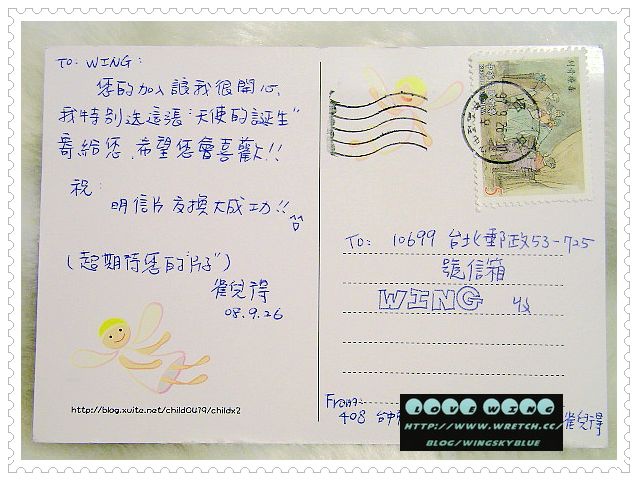 TO: WING:
您的加入讓我很開心,
我特別送這張"天使的誕生"
寄給您,希望您會喜歡!!
祝:
明信片交換大成功!!
(超期待您的"片子")
崔兒得
08.9.26
http://blog.xuite.net/child0419/childx2
5
To: 10699 台北郵政53-725
號信箱
WING 收
From:
408 台中
崔兒得
LOVE WING
HTTP://WWW.WRETCH.CC/
BLOG/WINGSKYBLUE